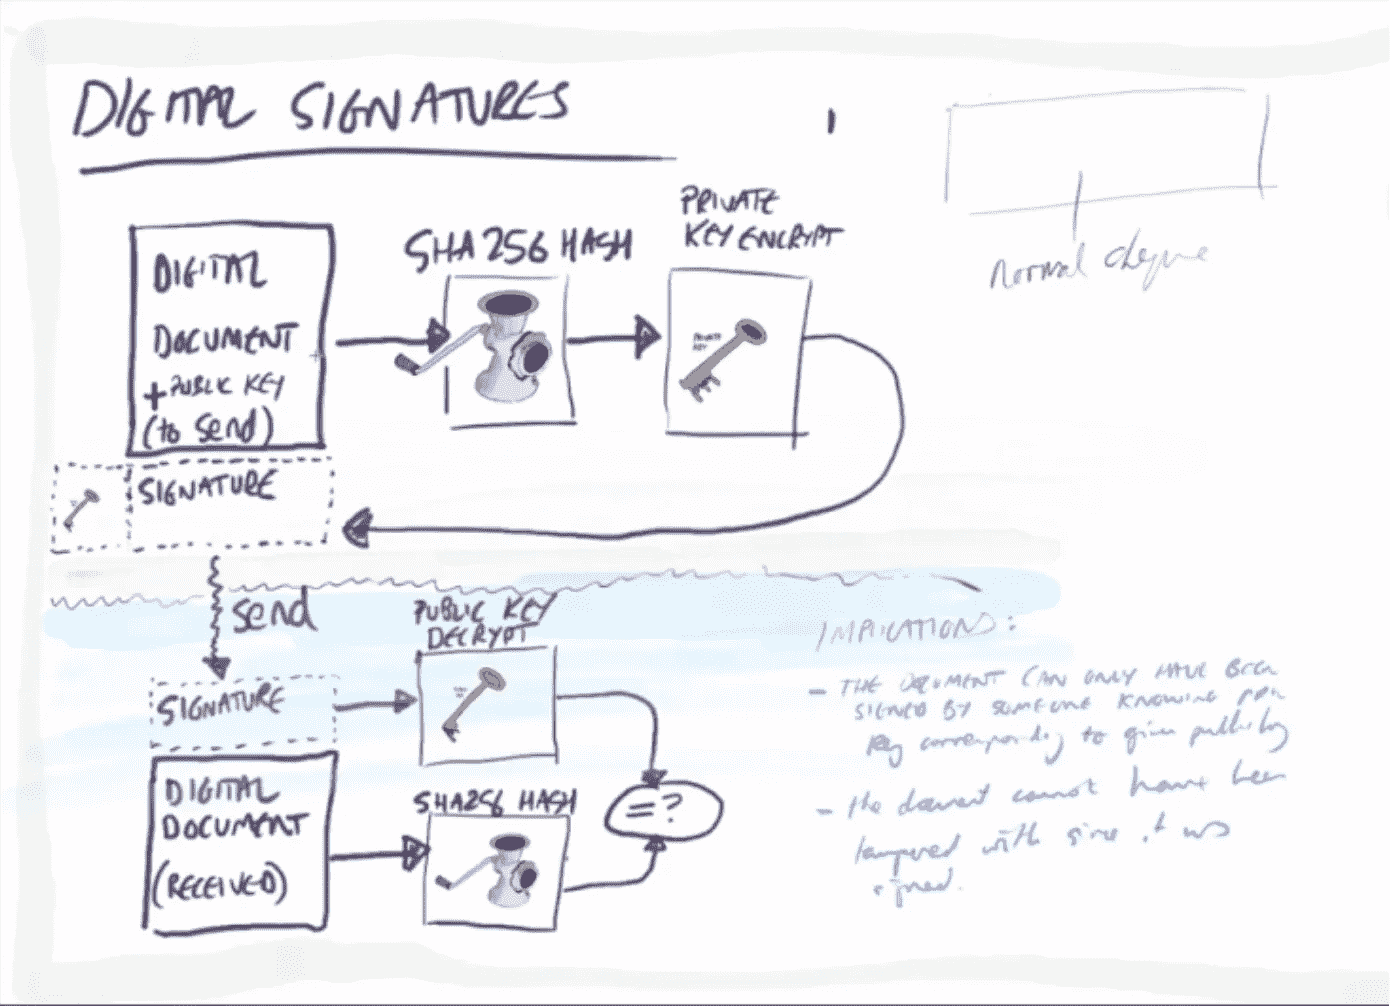 DIGITAL SIGNATURES
PRIVATE
KEY ENCRYPT
SHA256 HASH
DIGITAL
DOCUMENT
+ PUBLIC KEY
(to send)
PRIVATE
KEY
normal cheque
SIGNATURE
send
PUBLIC KEY
DECRYPT
SIGNATURE
DIGITAL
DOCUMENT
(RECEIVED)
SHA256 HASH
=?
IMPLICATIONS:
- THE DOCUMENT CAN ONLY HAVE BEEN
SIGNED BY SOMEONE KNOWING
key corresponding to given public key
- the document cannot have been
tampered with since it was
signed.